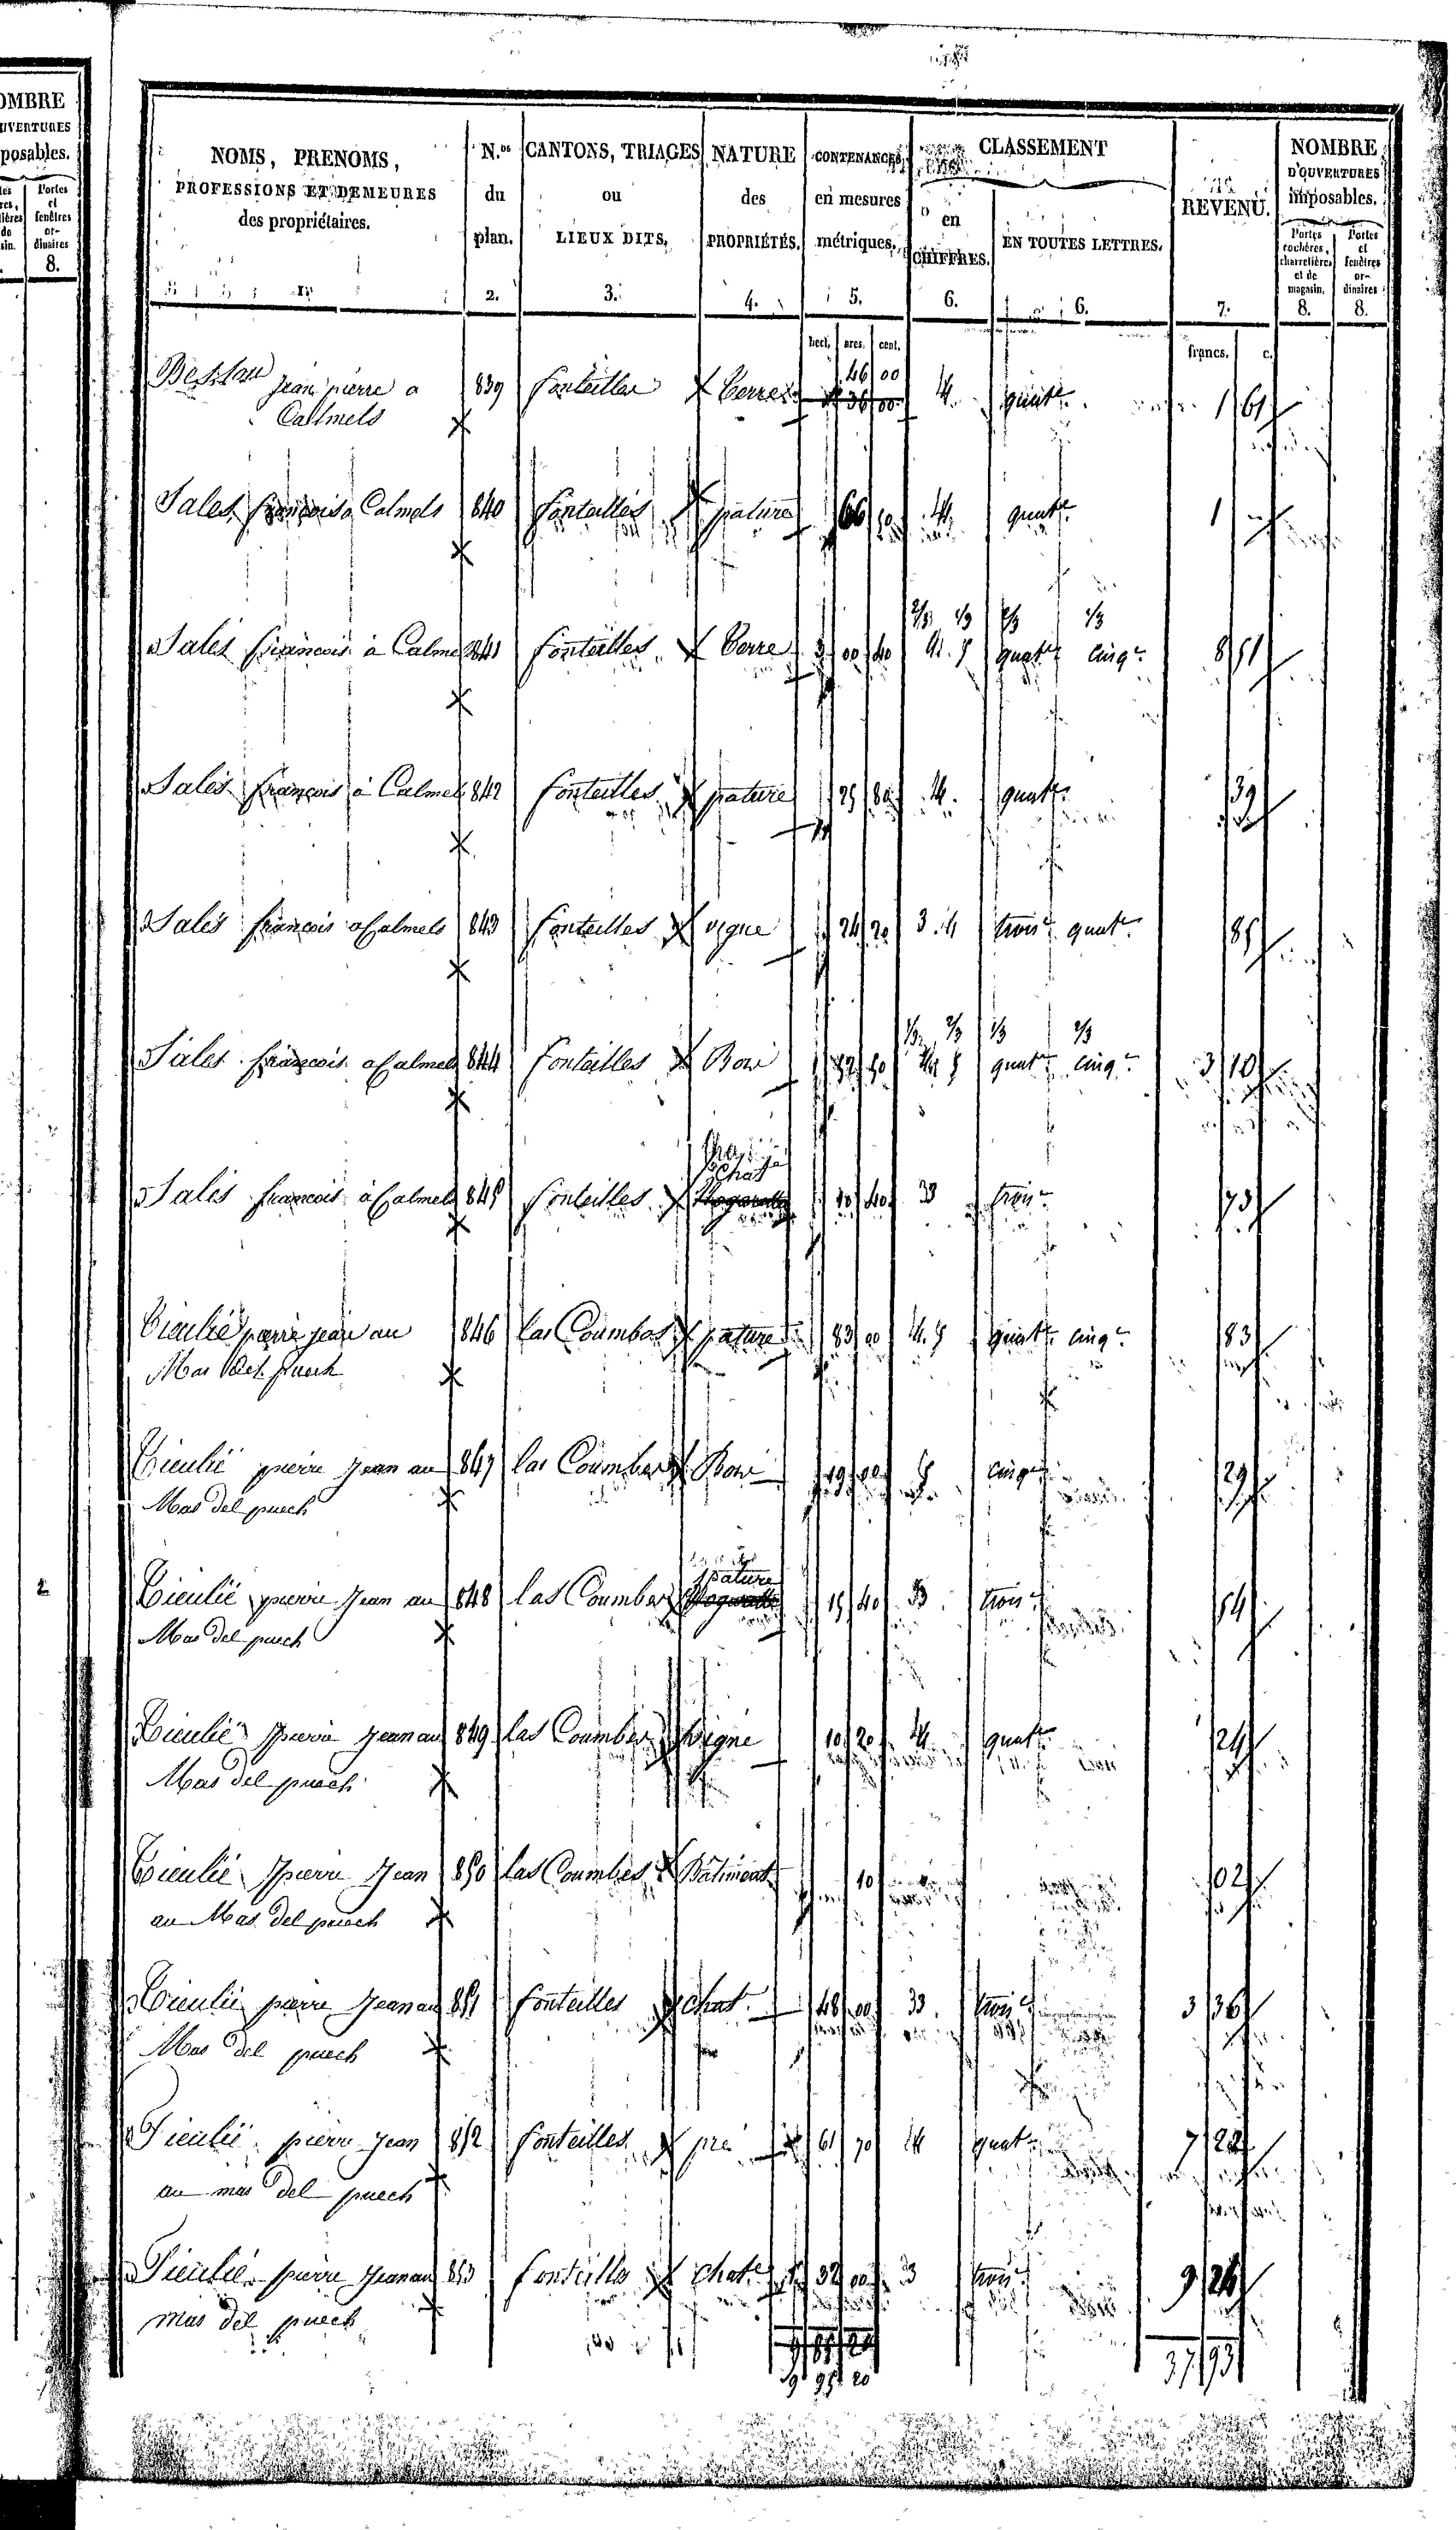 OMBRE
UVERTURES
posables.
Portes
et
fenêtres
or-
dinaires
8.
NOMS, PRENOMS,
PROFESSIONS ET DEMEURES
des propriétaires.
N.os
du
plan.
2.
CANTONS, TRIAGES
ou
LIEUX DITS.
3.
NATURE
des
PROPRIÉTÉS.
4.
CONTENANCES
en mesures
métriques.
5.
CLASSEMENT
en
CHIFFRES.
6.
EN TOUTES LETTRES.
6.
REVENU.
7.
NOMBRE
D'OUVERTURES
imposables.
Portes
cochères,
charretières
et de
magasin.
8.
Portes
et
fenêtres
or-
dinaires
8.
hect. ares. cent.
francs. c.
46 00
Jean pierre a 839 fonteilles terre 36 00 4. quat.e 1 61
Callmels
Sales françois a Calmels 840 fonteilles pature 66 50 4. quat.e 1
2/3 1/3 2/3 1/3
Sales françois à Calmels 841 fonteilles terre 3 00 40 4. 5 quat.e cinq.e 8 51
Sales françois à Calmels 842 fonteilles pature 25 80 4. quat.e 39
Sales françois a Calmels 843 fonteilles vigne 24 20 3. 4 trois.e quat.e 85
1/3 2/3 1/3 2/3
Sales françois a Calmels 844 fonteilles Bois 50 4. 5 quat.e cinq.e 3 10
Chat
Sales françois à Calmels 845 fonteilles 10 40 3 trois.e 73
Tieulié pierre jean au 846 las Coumbos pature 83 00 4. 5 quat.e cinq.e 83
Mas del puech
Tieulié pierre Jean au 847 las Coumbes Bois 19 00 5 cinq.e 29
Mas del puech
pature
Tieulié pierre Jean au 848 las Coumbes 15 40 3 trois.e 54
Mas del puech
Tieulié pierre Jean au 849 las Coumbes vigne 10 20 4 quat.e 24
Mas del puech
Tieulié pierre Jean 850 las Coumbes Bâtiment 10 02
au Mas del puech
Tieulié pierre Jean au 851 fonteilles chat. 48 00 3 trois.e 3 36
Mas del puech
Tieulié pierre Jean 852 fonteilles pré 61 70 4 quat.e 7 22
au mas del puech
Tieulié pierre Jean au 853 fonteilles chat.e 1 32 00 3 trois.e 9 24
mas del puech
9 85 20
9 95 20
37 93